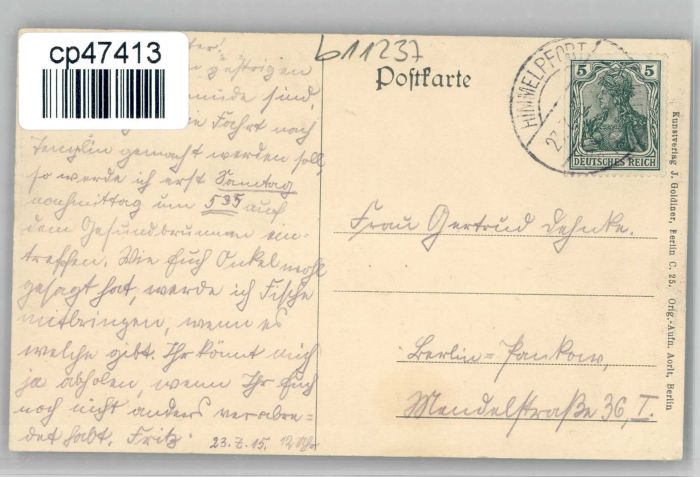 cp47413
b11237
Postkarte
HIMMELPFORT
5 5
DEUTSCHES REICH
ter!
n gestrigen
miede sind,
ie Fahrt nach
Templin gemacht werden soll,
so werde ich erst Sonntag
nachmittag um 5 35 auf
dem Gesundbrunnen ein-
treffen. Wie Euch Onkel wohl
gesagt hat, werde ich Fische
mitbringen, wenn es
welche gibt. Ihr könnt mich
ja abholen wenn Ihr Euch
noch nicht anders verabre=
det habt. Fritz.
23. 7. 15. 12 Uhr
Frau Gertrud Dehnke.
Berlin=Pankow,
Mendelstraße 36, I.
Kunstverlag J. Goldiner, Berlin C. 25. Orig.-Aufn. Aorit, Berlin